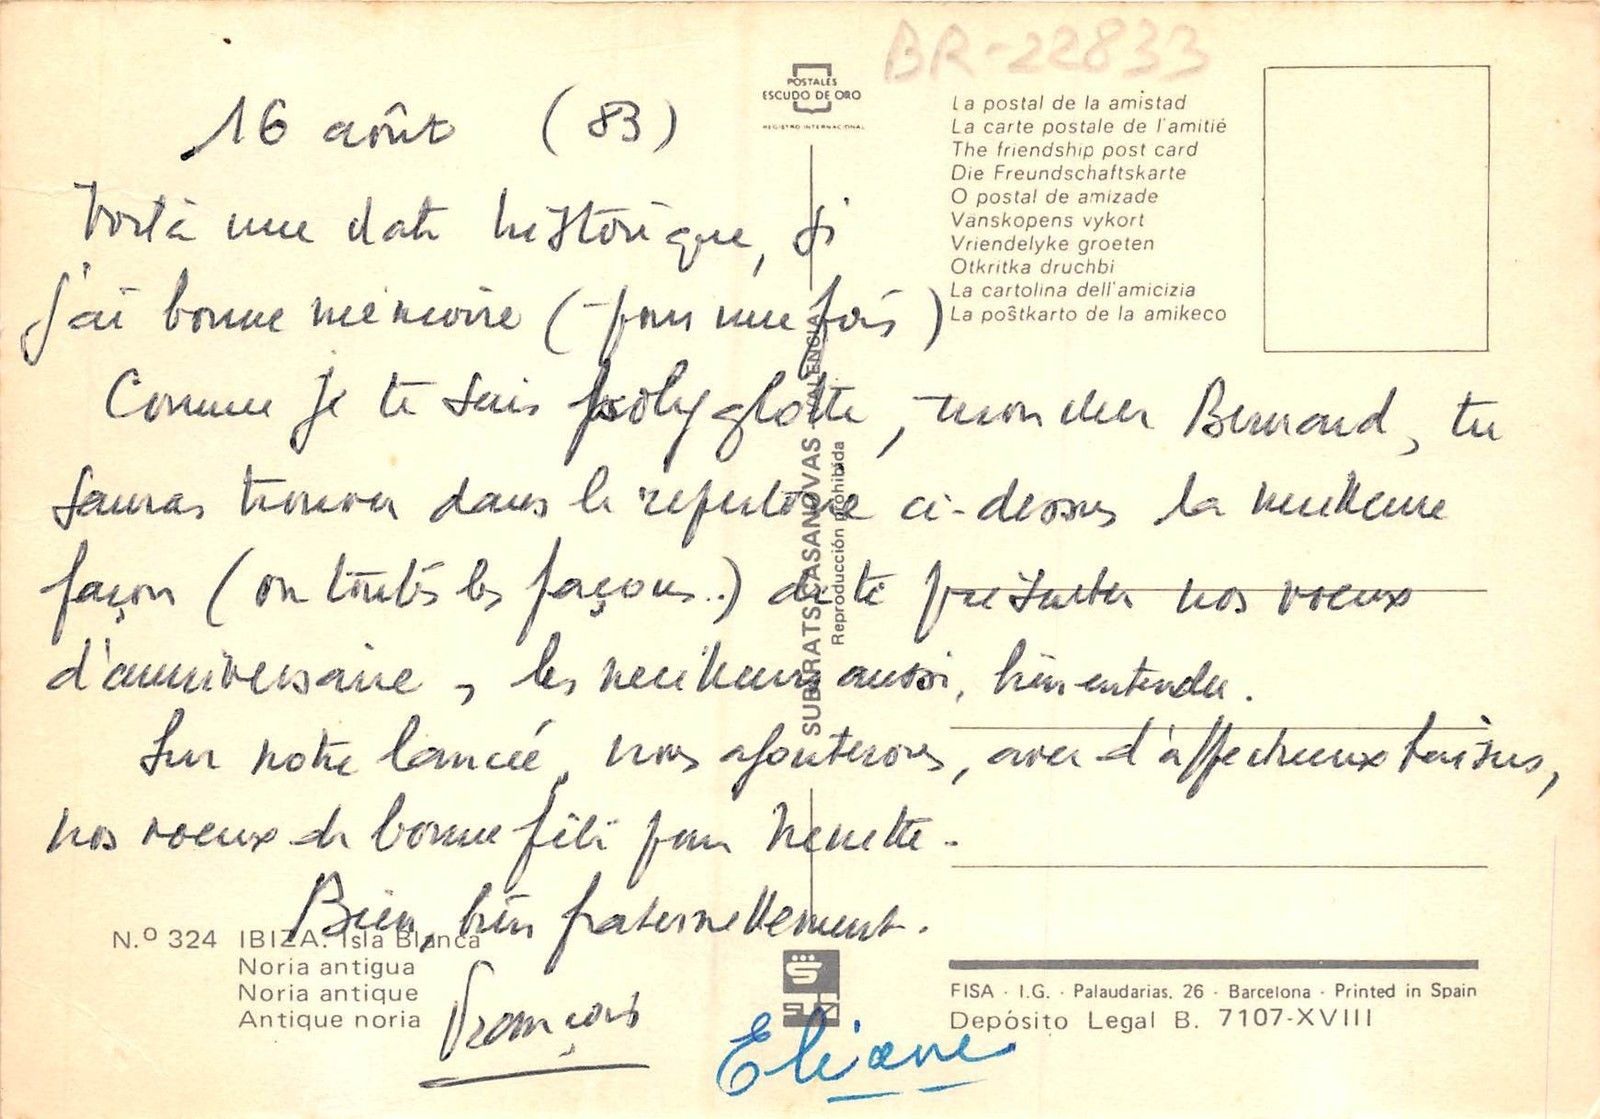 BR-22833
POSTALES
ESCUDO DE ORO
REGISTRO INTERNACIONAL
La postal de la amistad
La carte postale de l'amitié
The friendship post card
Die Freundschaftskarte
O postal de amizade
Vänskopens vykort
Vriendelyke groeten
Otkritka druchbi
La cartolina dell'amicizia
La poŝtkarto de la amikeco
16 août (83)
Voilà une date historique, si
j'ai bonne mémoire (pour une fois)
Comme je te sais polyglotte, mon cher Bernard, tu
sauras trouver dans le répertoire ci-dessus la meilleure
façon (ou toutes les façons..) de te présenter nos voeux
d'anniversaire, les meilleurs aussi, bien entendu.
Sur notre lancée, nous ajouterons, avec d'affectueux baisers,
nos voeux de bonne fête pour Nénette.
Bien, bien fraternellement.
François
Eliane
SUBIRATS CASANOVAS VALENCIA
Reproducción prohibida
N.º 324 IBIZA. Isla Blanca
Noria antigua
Noria antique
Antique noria
FISA · I.G. · Palaudarias, 26 · Barcelona · Printed in Spain
Depósito Legal B. 7107-XVIII